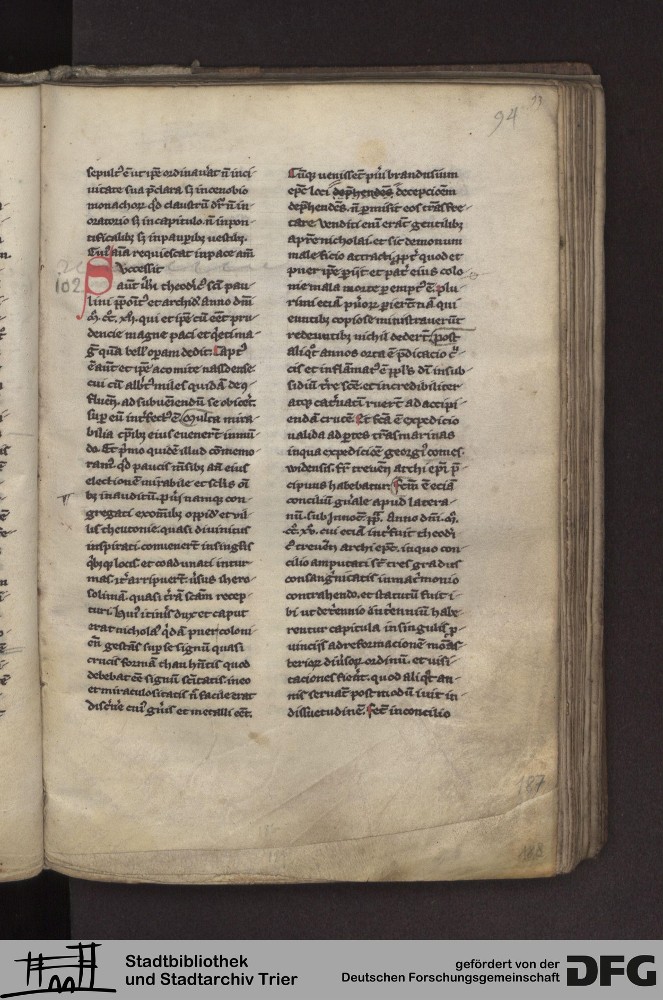 94
93
sepult᷒ ē ut ip̄e ordinau̾at n̄ in ci
uitate sua p̄clara sꝫ in cenobio
monachoꝝ qd̓ claustrū dr̄ n̄ in
oratorio sꝫ in capitulo. n̄ in pon
tificalibꝫ sꝫ in paup̲ibꝫ uestibꝫ.
Cui᷒ aīa requiescat in pace am̄
Successit
102
aut̄ ibi theodic᷒ sc̄i pau
lini p̄posit᷒ et archid̓. anno dn̄i
ꝳ. cc̊. xij. qui et ip̄e cū eēt pru
dencie magne paci et q̓eti ma
g̓ quā bell̓ op̲am dedit. Capt᷒
ē aut̄ et ip̄e a comite nassoense.
cui cū alb̓t᷒ miles quidā de
fluēn. ad subueniendū se obicet̓.
sup̲ eū int̓fect᷒ ē. Multa mira
bilia tp̄ibꝫ eius euenert̄ in mū
do. Et p̓mo quidē illud cōmemo
ram᷒. qd̓ paucis mēsibꝫ an̄ eius
electionē mirabile et sclis oī
bꝫ inauditū. pu̾i namqꝫ con
gregati ex om̄ibꝫ oppid̓ et uil
lis theutonie. quasi diuinitus
inspirati conuenert̄ in singlis
q̓bꝫqꝫ locis. et coadunati in tur
mas it̓ arripuert̄. u̾sus ihero
solimā. quasi t̾rā sc̄am recep
turi. hui᷒ itin̾is dux et caput
erat nichola᷒ q̓dā puer coloni
en̄. gestās sup̲ se signū quasi
crucis formā thau hn̄tis quod
debebat eē signū sc̄itatis. in eo
et miraculositatis n̄ facile erat
discn̾e cui᷒ gn̾is et metalli eēt.
Cūqꝫ uenissēt pu̾i brandusium
ep̄c loci decepcioēm
dep̲hendēs. n̄ p̲misit eos t̓nsfre
tare. Venditi enī erāt gentilibꝫ
a pr̄e nicholai. et sic demonum
maleficio attracti. pp̓t̾ quod et
puer ip̄e p̲ijt. et pat̾ eius colo
nie mala morte p̲empt᷒ ē. plu
rimi eciā pu̾oꝝ p̲ierūt. nā qui
euntibꝫ copiose ministrauerūt
redeuntibꝫ nichil dedert̄. Post
aliq̓t annos orta ē p̄dicacio c̓u
cis et inflāmat᷒ ē ppl̓s dī in sub
sidiū t̾re sc̄e. et incredibiliter
atqꝫ cat̾uatī ruert̄ ad accipi
endā crucē. Et fc̄a ē expedicio
ualida ad p̲tes t̓nsmarinas
in qua expedicioē georgi᷒ comes.
widensis. fr̄ treuēn archi ep̄i p̓
cipuus habebatur. Fc̄m ē eciā
conciliū gn̾ale apud latera
nū. sub Innoc̄. pp̄. anno dn̄i. ꝳ.
cc̊. xv. cui eciā int̾fuit theod̓i
c᷒ treuēn archi ep̄c. in quo con
cilio amputati st̄ tres gradus
consang̓nitatis in mat̓monio
contrahendo. et statutū fuit i
bi ut de t̓ennio ī t̓enniū habe
rentur capitula in singulis p̲
uinciis ad reformacionē monas
terioꝝ diu̾soꝝ ordinū. et uisi
taciones fieēt. quod aliq̓t an
nis seruat̄ postmodū iuit in
dissuetudinē. Fc̄m ē in concilio
187
Stadtbibliothek
und Stadtarchiv Trier
gefördert von der
Deutschen Forschungsgemeinschaft
DFG